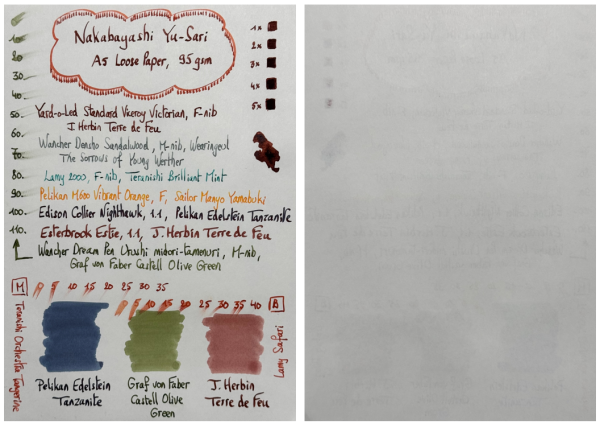 Nakabayashi Yu-Sari
A5 Loose Paper, 95 gsm
1x
2x
3x
4x
5x
10
20
30
40
50
60
70
80
90
100
110
Yard-o-Led Standard Viceroy Victorian, F-nib
J. Herbin Terre de Feu
Wancher Densho Sandalwood, M-nib, Wearingeul
The Sorrows of Young Werther
Lamy 2000, F-nib, Teranishi Brilliant Mint
Pelikan M600 Vibrant Orange, F, Sailor Manyo Yamabuki
Edison Collier Nighthawk, 1.1, Pelikan Edelstein Tanzanite
Esterbrook Estie, 1.1, J. Herbin Terre de Feu
Wancher Dream Pen Urushi midori-tamenuri, M-nib,
Graf von Faber Castell Olive Green
M
0 5 10 15 20 25 30 35
0 5 10 15 20 25 30 35 40
B
Teranishi Orchestra Tangerine
Lamy Safari
Pelikan Edelstein
Tanzanite
Graf von Faber
Castell Olive
Green
J. Herbin
Terre de Feu